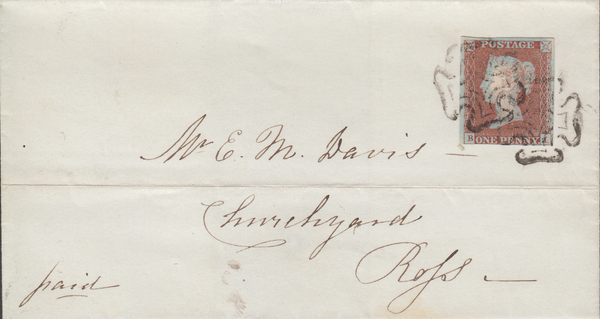 POSTAGE
B
ONE PENNY
Mr E. M. Davis —
Churchyard
Ross —
paid